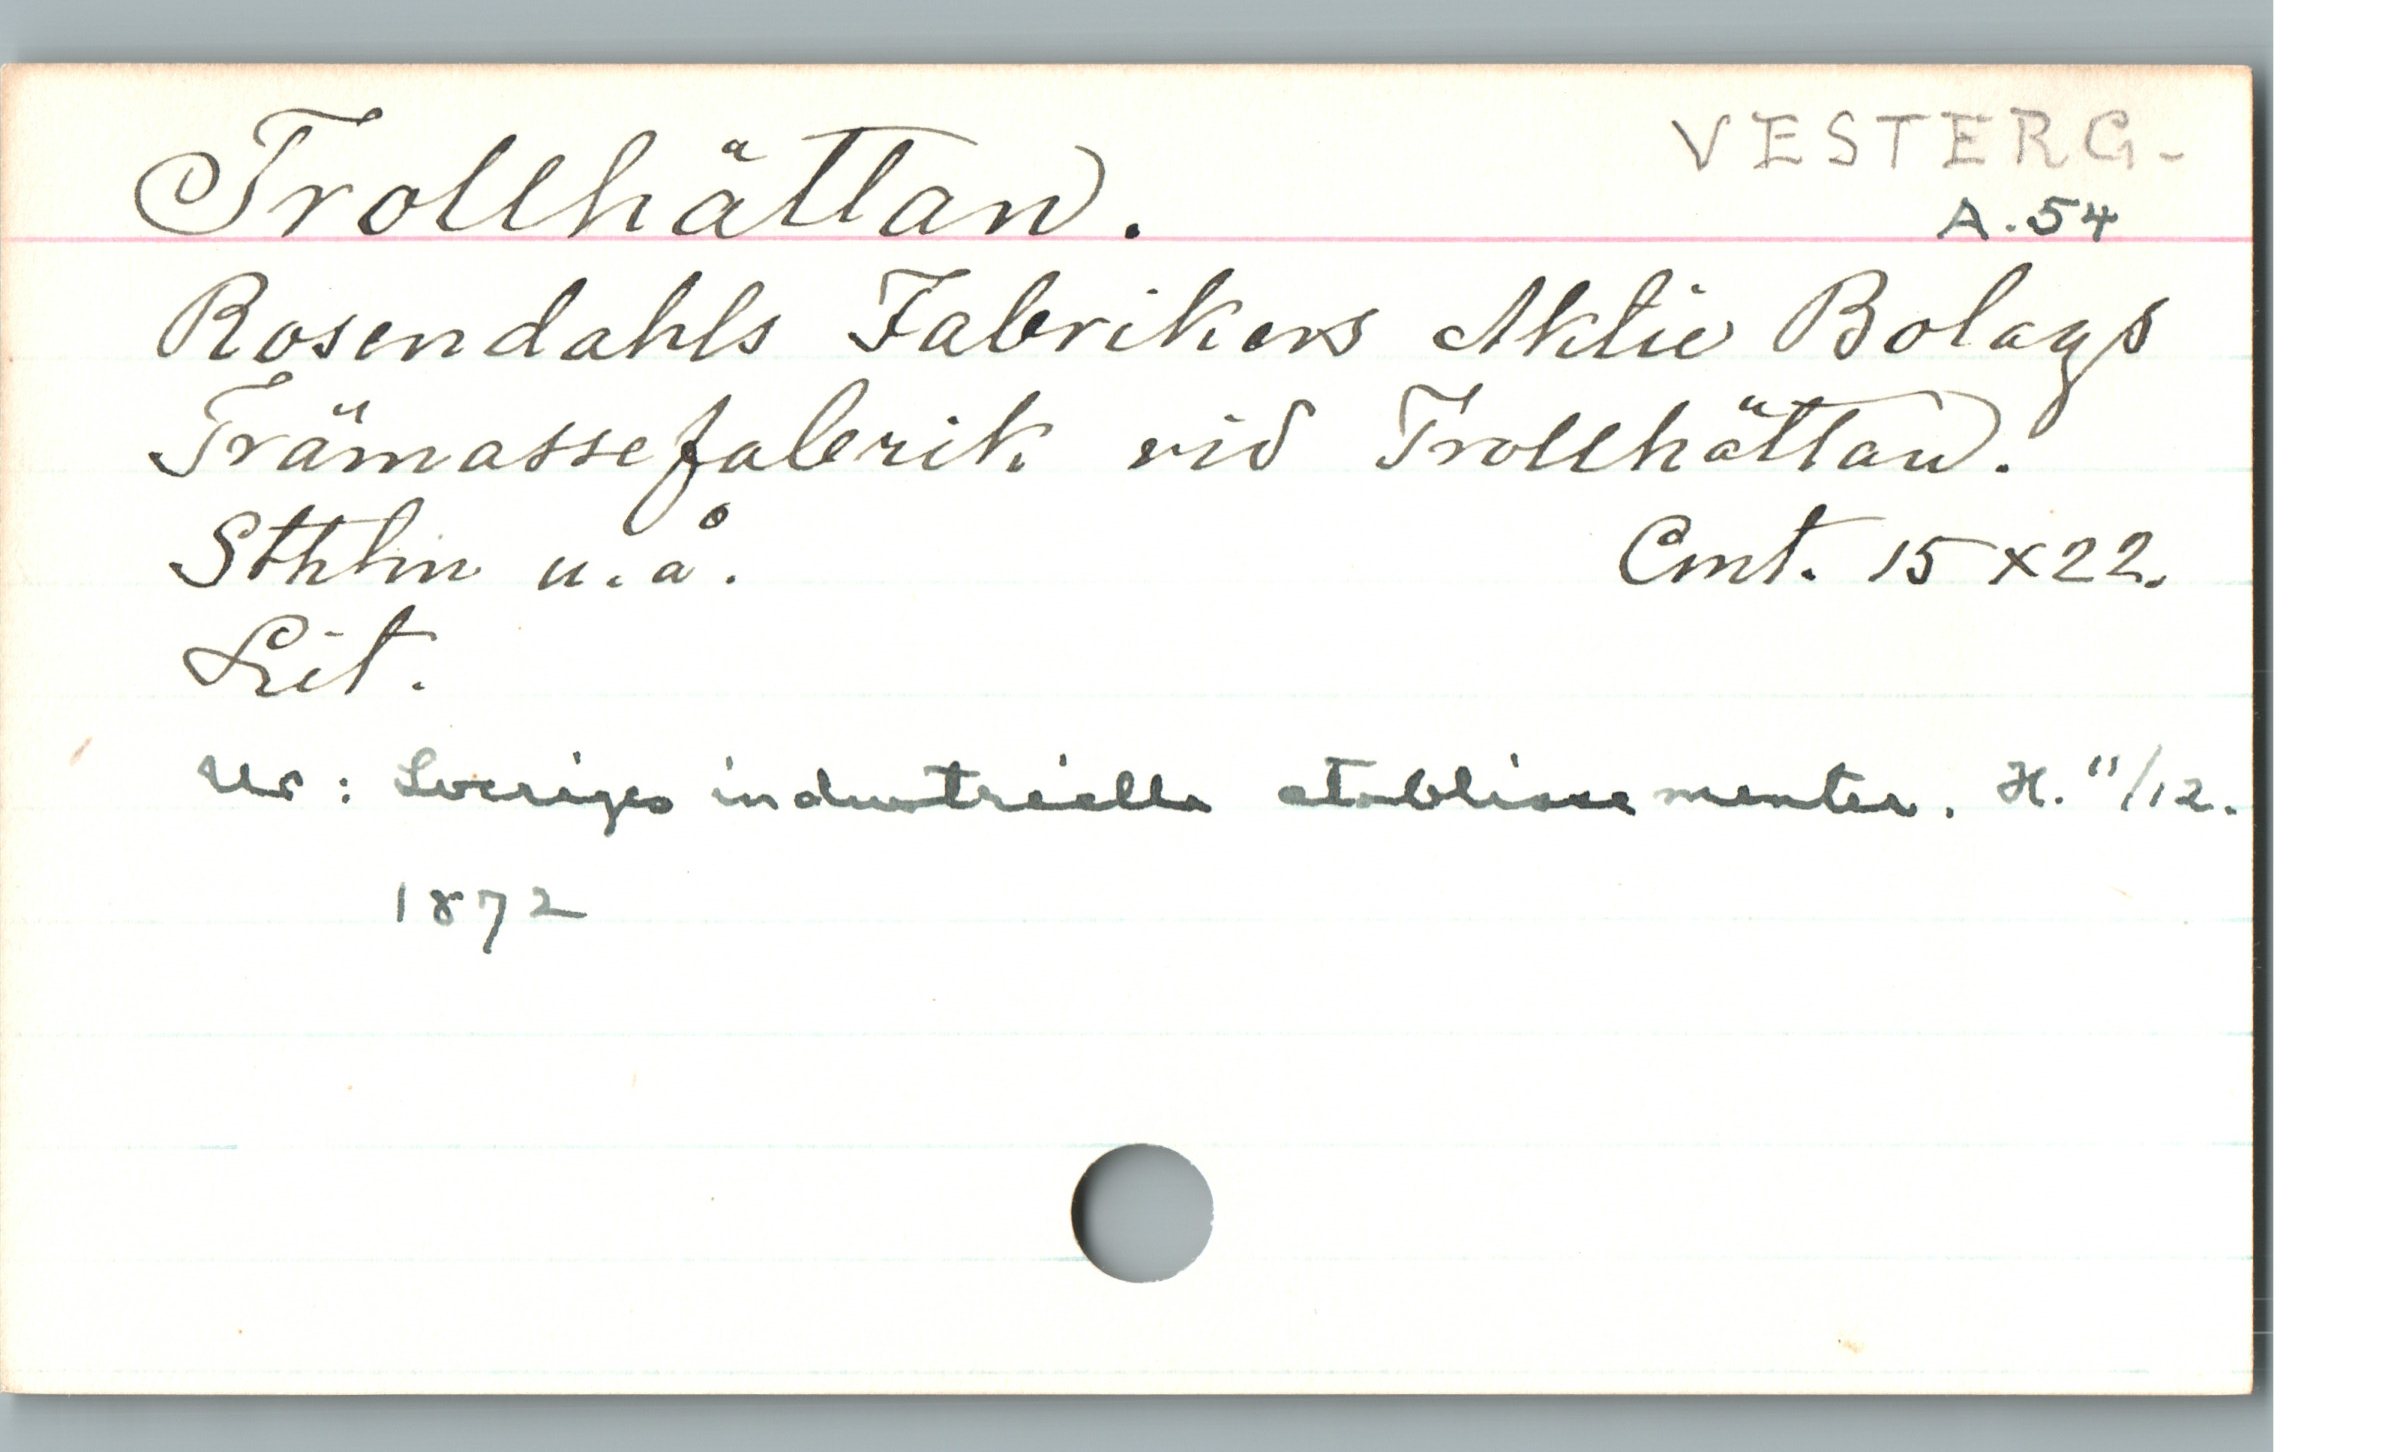 Trollhättan.
VESTERG-
A.54
Rosendahls Fabrikers Aktie Bolags
Trämassefabrik vid Trollhättan.
Sthlm u.å.
Cmt. 15x22.
Lit.
Ur: Sveriges industriella etablissementer. H. 11/12.
1872